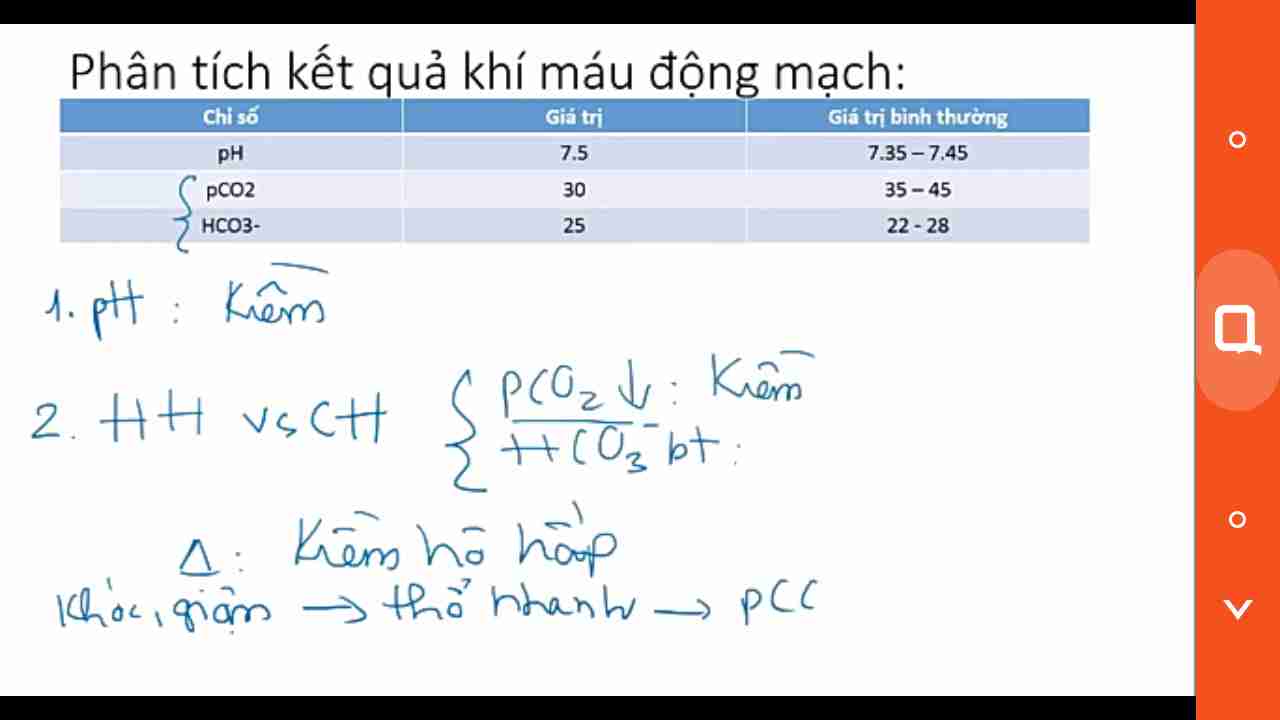 Phân tích kết quả khí máu động mạch:
Chỉ số Giá trị Giá trị bình thường
pH 7.5 7.35 – 7.45
pCO2 30 35 – 45
HCO3- 25 22 - 28
1. pH : Kiềm
2. HH vs CH { pCO2 ↓ : Kiềm
HCO3- bt :
Δ : Kiềm hô hấp
Khóc, giận → thở nhanh → pCC